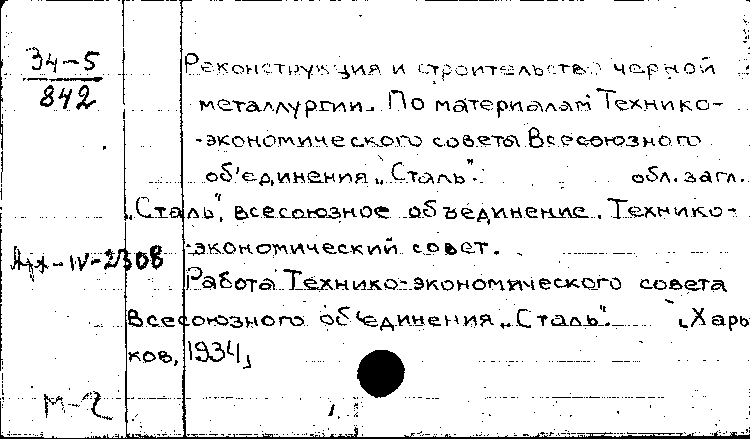 34-5
842
Реконструкция и строительство черной
металлургии. По материалам Технико-
-экономического совета Всесоюзного
об'единения „Сталь".
обл. загл.
„Сталь", всесоюзное объединение. Технико-
-экономический совет.
Арх-IV-2308
Работа Технико-экономического совета
Всесоюзного об'единения „Сталь". „Харь
ков, 1934,
М-2